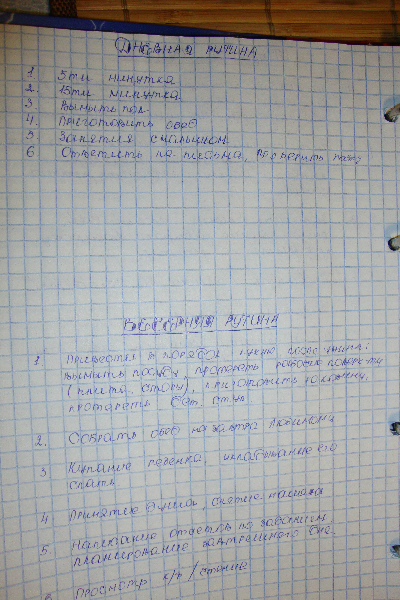 ДНЕВНАЯ РУТИНА
1. 5ти минутка
2. 15ти минутка
3 Вымыть пол
4. Приготовить обед
5. Занятия с малышом
6 Ответить на письма, проверить почту
ВЕЧЕРНЯЯ РУТИНА
1 Привести в порядок кухню после ужина:
вымыть посуду, протереть рабочие поверхности
(плита, столы), приготовить
протереть дет. стул
2. Собрать обед на завтра любимому
3 Купание ребенка, укладывание его
спать
4 Принятие душа, снятие макияжа
5 Написание ответов по заданиям,
планирование завтрашнего дня.
6 Просмотр х/ф / чтение